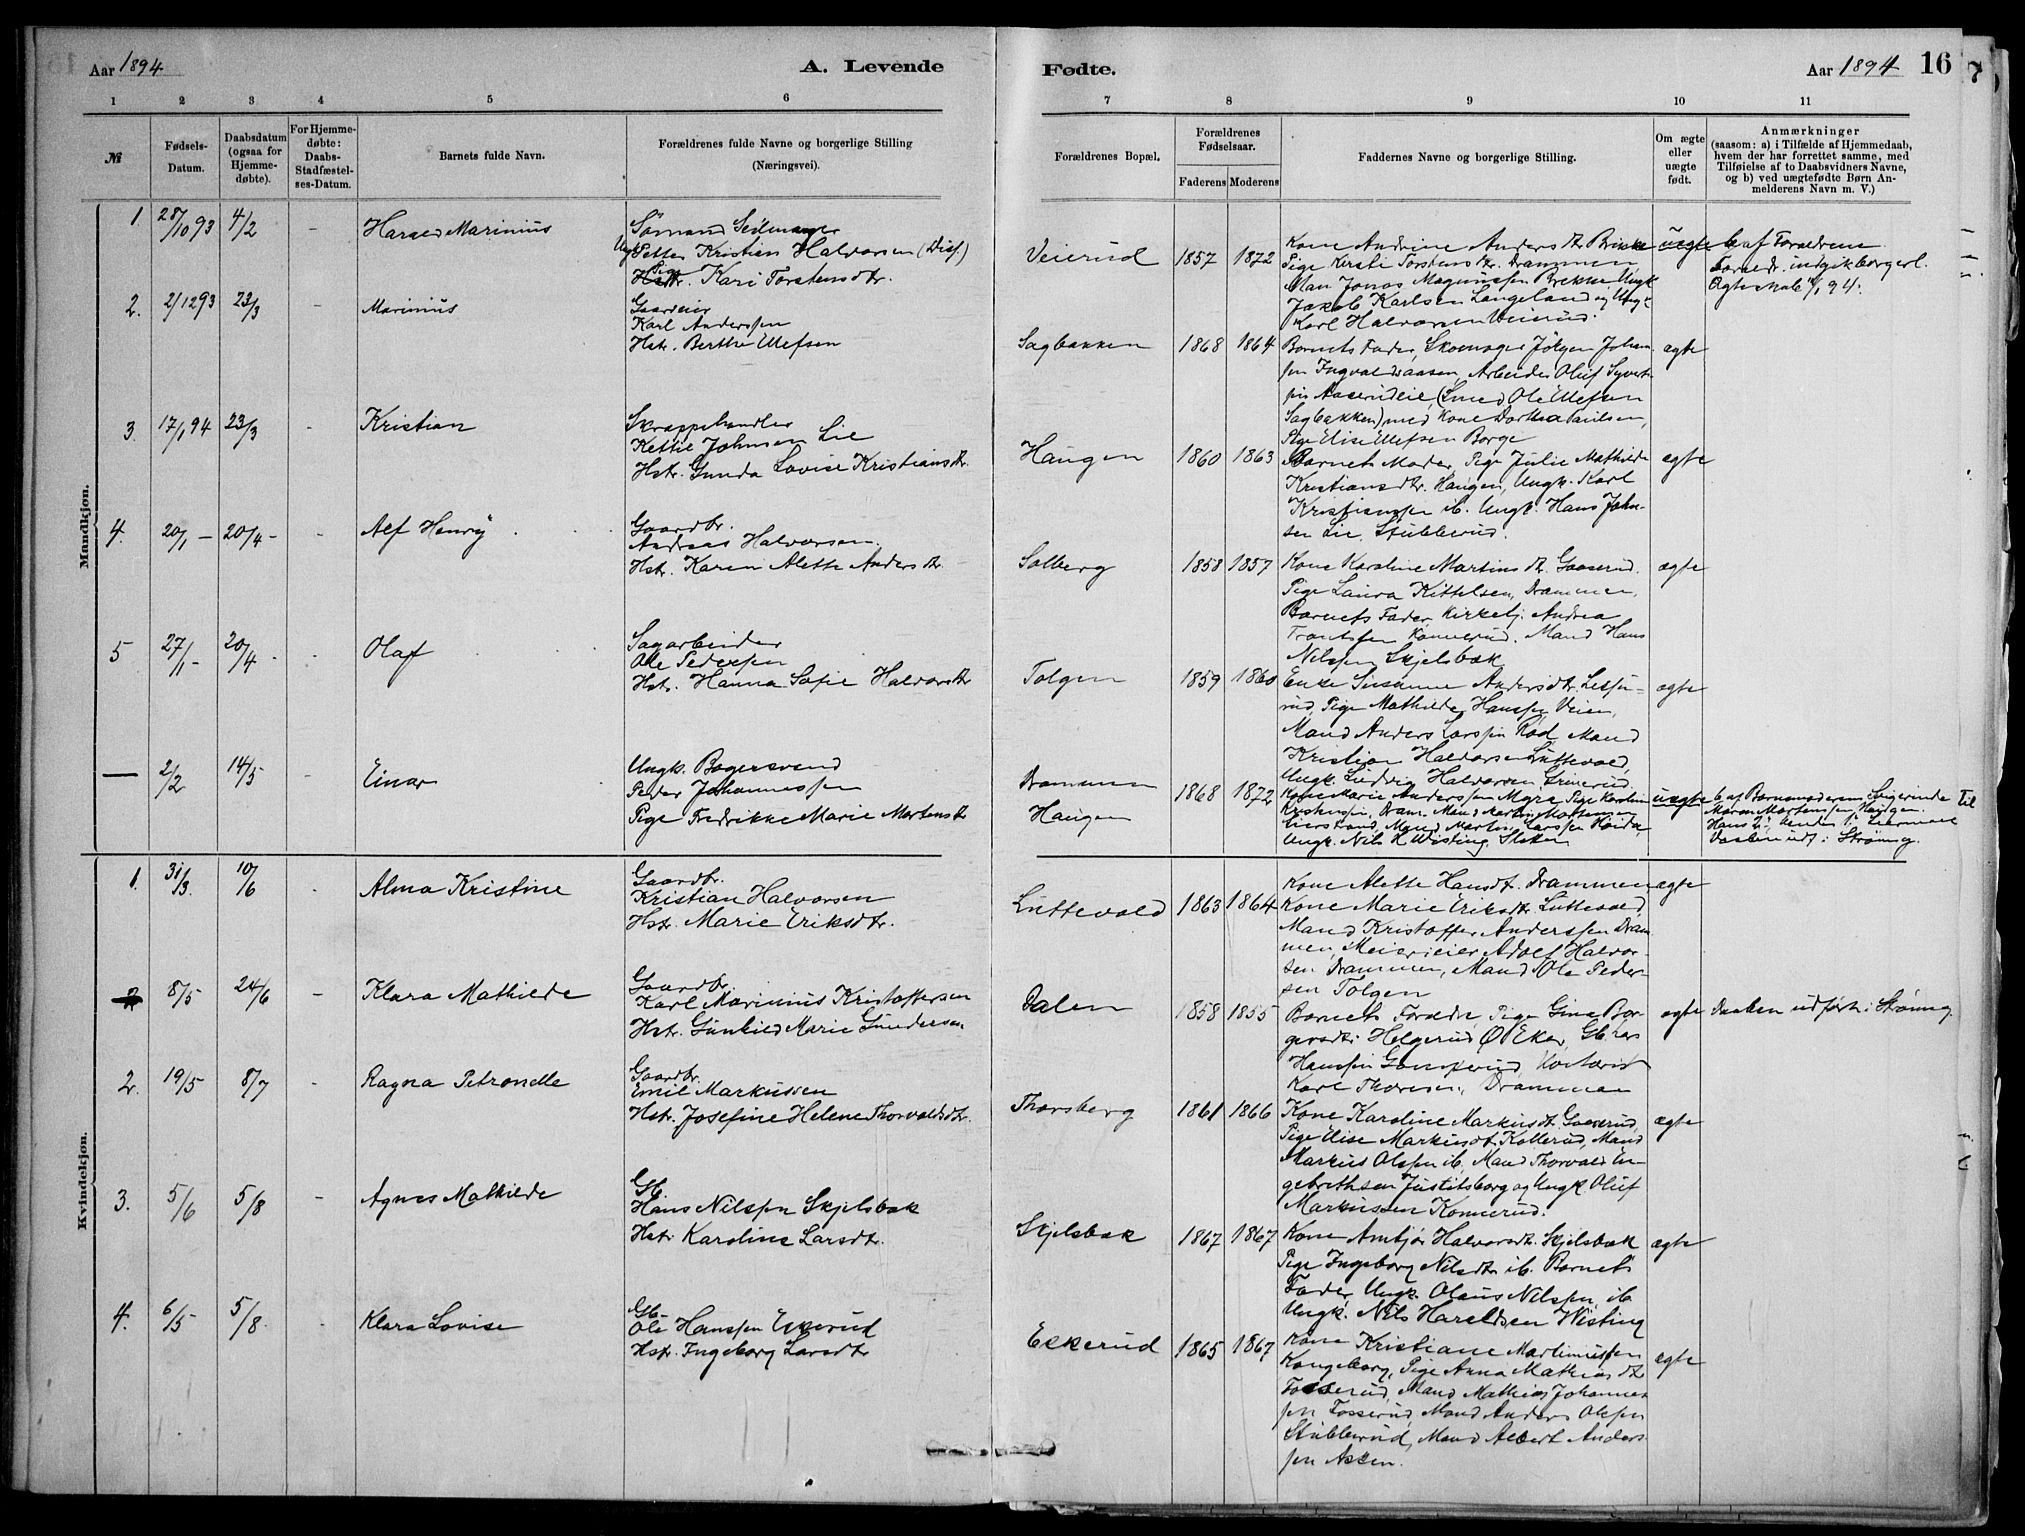 Aar 1894
A. Levende
Fødte.
Aar 1894
16
7
1 2 3 4 5 6
7 8 9 10 11
№
Fødsels-
Datum.
Daabsdatum
(ogsaa for
Hjemme-
døbte).
For Hjemme-
døbte:
Daabs-
Stadfæstel-
ses-Datum.
Barnets fulde Navn.
Forældrenes fulde Navne og borgerlige Stilling
(Næringsvei).
Forældrenes Bopæl.
Forældrenes
Fødselsaar.
Faderens Moderens
Faddernes Navne og borgerlige Stilling.
Om ægte
eller
uægte
født.
Anmærkninger
(saasom: a) i Tilfælde af Hjemmedaab,
hvem der har forrettet samme, med
Tilføielse af to Daabsvidners Navne,
og b) ved uægtefødte Børn An-
melderens Navn m. V.)
Mandkjøn.
1. 28/10 93 4/2 - Harald Marinius
Sømand
Ungk. Petter Kristian Halvorsen (Diss.)
Pige Kari Torstensdtr.
Veierud 1857 1872
Kone Andrine Andersdtr.
Pige Kirsti Torstensdtr. Drammen
Man Jonas Magnussen Brekke Ungk
Jakob Karlsen Langeland og Ungk
Karl Halvorsen Veierud.
uegte
b af Forældrene
Foreldr. indgik borgerl.
Ægteskab 94.
2. 2/12 93 23/3 Marinius
Gaardeier
Karl Anderssen
Hstr. Berthe Ulefsen
Sagbakken 1868 1864
Barnets Fader, Skomager Jörgen Johan-
sen Ingvaldsaasen, Arbeider Oluf Syvert-
sen Aaserudeie, (Smed Ole Ulefsen
Sagbakken) med Kone Dorthea Paulsen,
Pige Elise Ulefsen Borge
ægte
3. 17/1 94 23/3 - Kristian
Skræppehandler
Kettil Johnsen Lie
Hstr. Gunda Lovise Kristiansdtr.
Haugen 1860 1863
Barnets Moder, Pige Julie Mathilde
Kristiansdtr. Haugen, Ungk. Karl
Kristiansen ib. Ungk. Hans John-
sen Lie, Stubberud.
ægte
4. 20/1 - 20/4 - - Alf Henry
Gaardbr.
Andreas Halvorsen.
Hstr. Karen Alette Andersdtr.
Solberg 1858 1857
Kone Karoline Martinsdtr. Gaaserud.
Pige Laura Kittelsen, Drammen,
Barnets Fader, Kirketj. Andrea
Konnerud. Mand Hans
Nilssen Skjelsbæk
ægte
5 27/1 - 20/4 - Olaf
Sagarbeider
Ole Pederssen
Hstr. Hanna Sofie Halvorsdtr
Tolgen 1859 1860
Enke Susanne Andersdtr.
Pige Mathilde Hanssen Veien,
Mand Anders Larssen Rød Mand
Kristian Halvorsen Luttevold,
Ungk. Ludvig Halvorsen
ægte
— 2/2 14/5 - Einar
Ungk. Bagersvend
Peder Johannessen
Pige Fredrikke Marie Mortensdtr
Drammen
Haugen
1868 1872
Kone Marie Anderssen Pige Karoline
Kristensen, Dram. Mand
Mand Martin Larssen
Ungk. Nils H Wisting
uegte
b af Barnemoderens Svigerinde
Haugen.
i Strømsg.
Til
Kvindekjøn.
1. 31/3 10/6 - Alma Kristine
Gaardbr.
Kristian Halvorsen
Hstr. Marie Eriksdtr.
Luttevold 1863 1864
Kone Alette Hansdtr. Drammen
Kone Marie Eriksdtr. Luttevold,
Mand Kristoffer Anderssen Dram-
men Meierieier Adolf Halvor-
sen Drammen, Mand Ole Peder-
sen Tolgen
ægte
8/5 24/6 - Klara Mathilde
Gaardbr.
Karl Marinius Kristoffersen
Hstr. Gunhild Marie Gundersen
Dalen 1858 1855
Barnets Forældre, Pige Gina Bor-
gersdtr. Helgerud Ø Eker, Gb. Lars
Hanssen
Karl Thoresen, Drammen
ægte
Daaben udført i Strømsg.
2. 19/5 8/7 - Ragna Petronelle
Gaardbr.
Emil Markussen
Hstr. Josefine Helene Thorvaldsdtr.
Thorsberg 1861 1866
Kone Karoline Markusdtr. Gaaserud,
Pige Elise Markusdtr. Kollerud, Mand
Markus Olssen ib, Mand Thorvald En-
gebrethsen Justitsborg og Ungk. Oluf
Markussen Konnerud.
ægte
3. 5/6 5/8 - Agnes Mathilde
Gb.
Hans Nilssen Skjelsbæk
Hstr. Karoline Larsdtr.
Skjelsbæk 1867 1867
Kone Anthjör Halvorsdtr. Skjelsbæk
Pige Ingeborg Nilsdtr ib. Barnets
Fader, Ungk. Olaus Nilssen ib.
Ungk. Nils Haraldsen Wisting
ægte
4. 6/5 5/8 - Klara Lovise
Gb.
Ole Hanssen Ekerud
Hstr. Ingeborg Larsdtr
Ekkerud 1865 1867
Kone Kristiane Martinussen
Kongsberg, Pige Anna Mathiasdtr
Fosserud, Mand Mathias Johannes-
sen Fosserud, Mand Anders Olssen
Stubberud, Mand Albert Anders-
sen Assen.
ægte